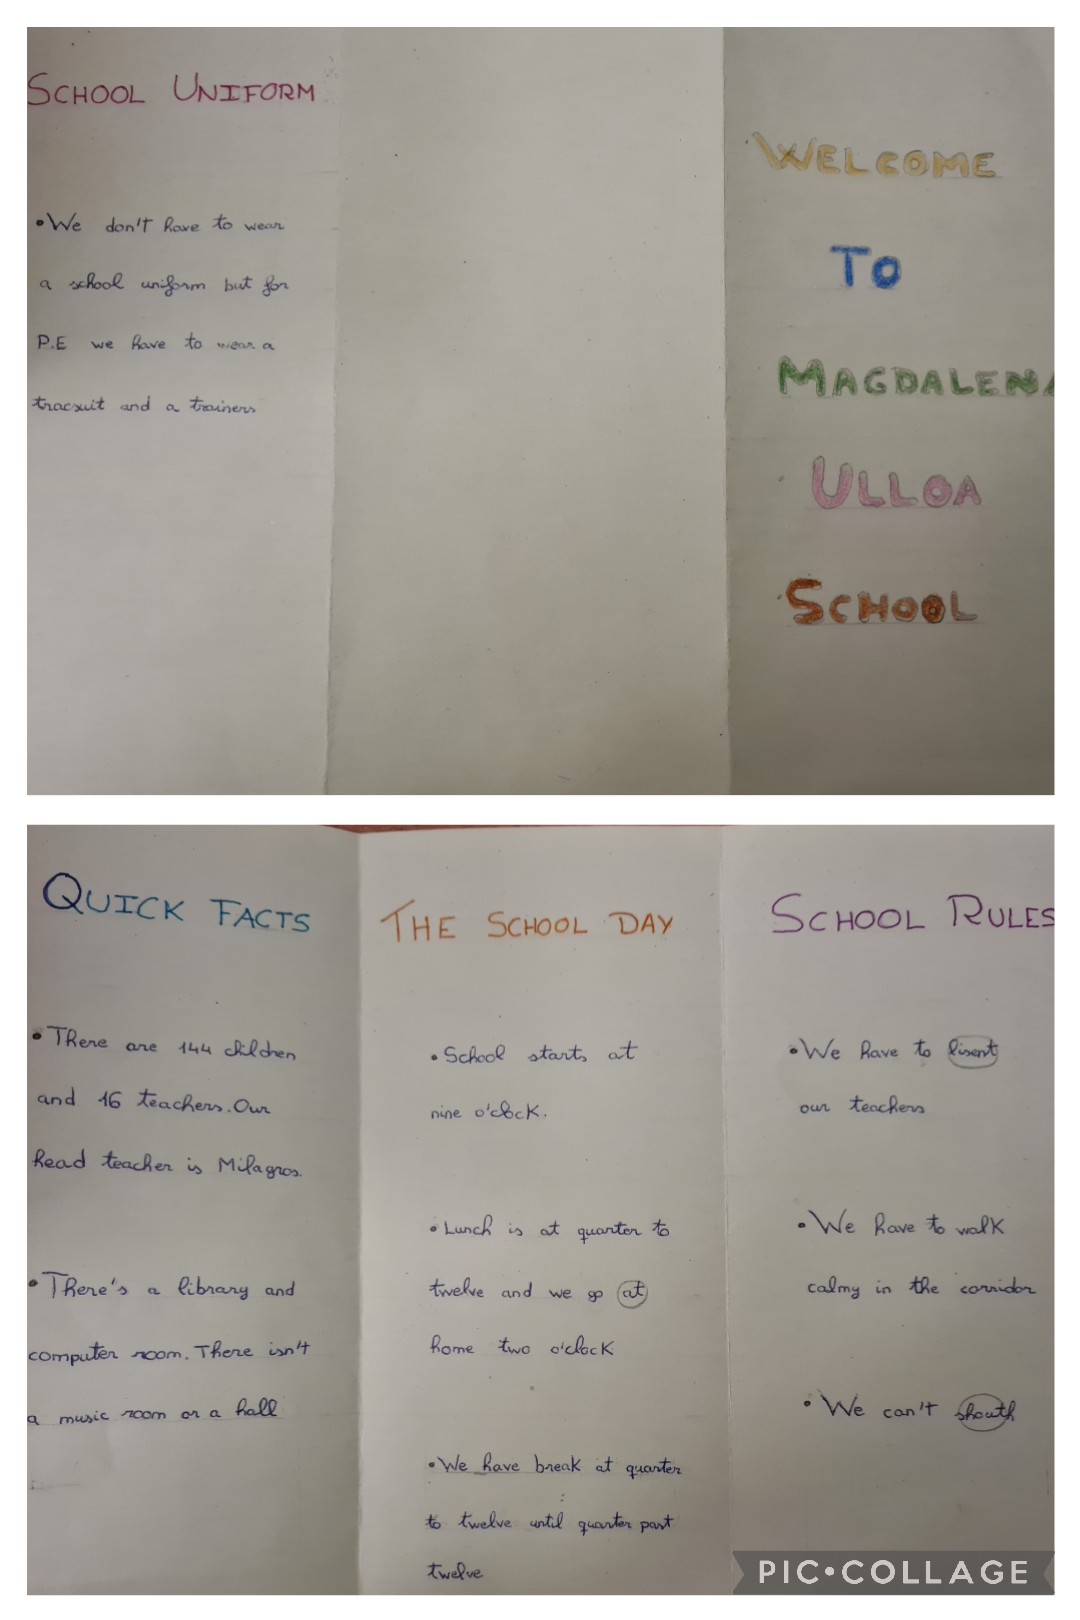 SCHOOL UNIFORM
•We don't have to wear
a school uniform but for
P.E we have to wear a
tracsuit and a trainers
WELCOME
TO
MAGDALENA
ULLOA
SCHOOL
QUICK FACTS
•There are 144 children
and 16 teachers. Our
head teacher is Milagros.
•There's a library and
computer room. There isn't
a music room or a hall
THE SCHOOL DAY
•School starts at
nine o'clock.
•Lunch is at quarter to
twelve and we go at
home two o'clock
•We have break at quarter
to twelve until quarter past
twelve
SCHOOL RULES
•We have to lisent
our teachers
•We have to walk
calmy in the corridor
•We can't shouth
PIC•COLLAGE